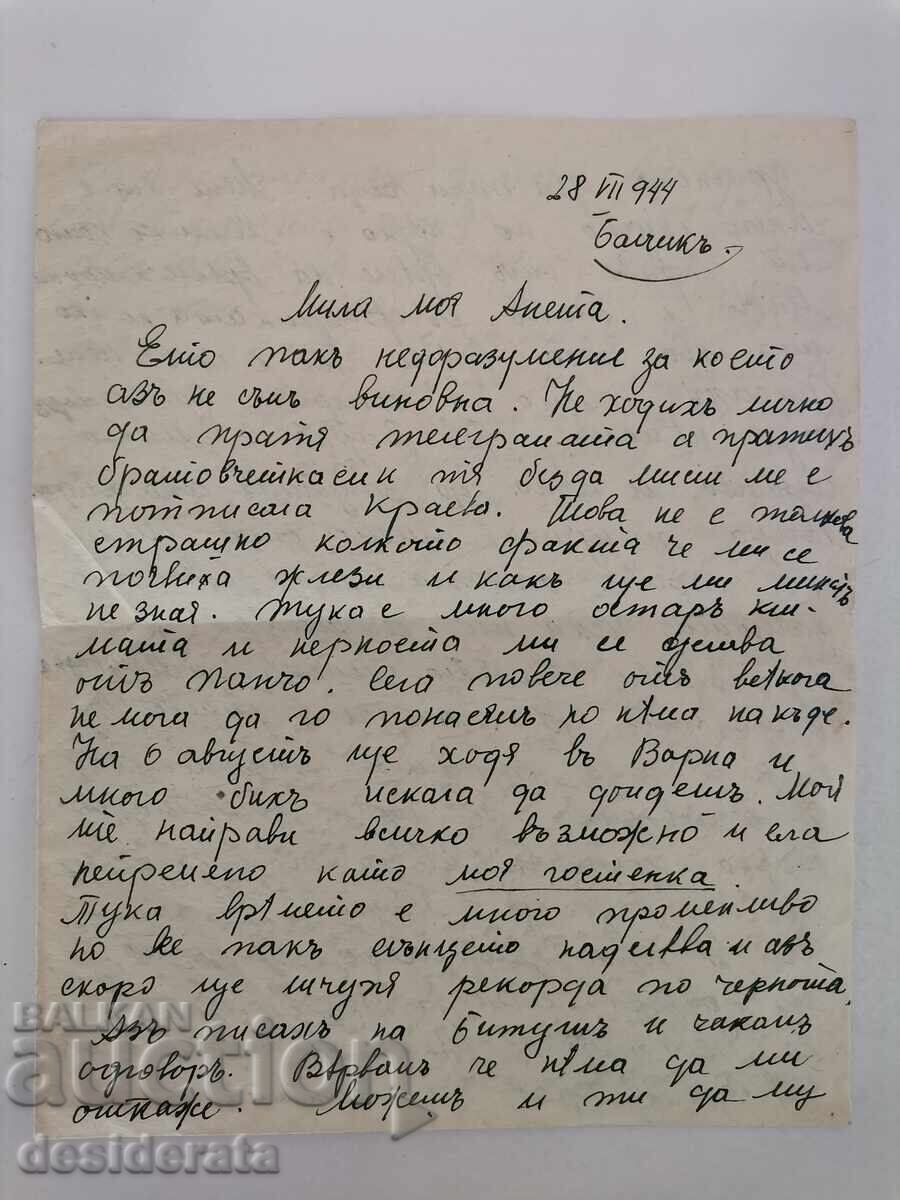 28 VII 944
Балчикъ.
Мила моя Анета.
Ето пакъ недоразумение за което
азъ не съмъ виновна. Не ходихъ лично
да пратя телеграмата а пратихъ
братовчетка си и тя без да мисли ме е
потписала Краева. Това не е толкова
страшно колкото факта че ми се
появиха жлези и какъ ще ми минатъ
не зная. Тука е много остаръ кли-
мата и нервноста ми се
отъ Панчо. Сега повече отъ всѣкога
не мога да го понасямъ но нѣма накъде.
На 6 августъ ще ходя въ Варна и
много бихъ искала да дойдешъ. Моля
те направи всичко възможно и ела
непремено като моя гостенка.
Тука врѣмето е много променливо
но все пакъ слънцето надделява и азъ
скоро ще счупя рекорда по чернота.
Азъ писахъ на и чакамъ
одговоръ. Вѣрвамъ че нѣма да ми
откаже. Можешъ и ти да му
BALKAN
auction
desiderata